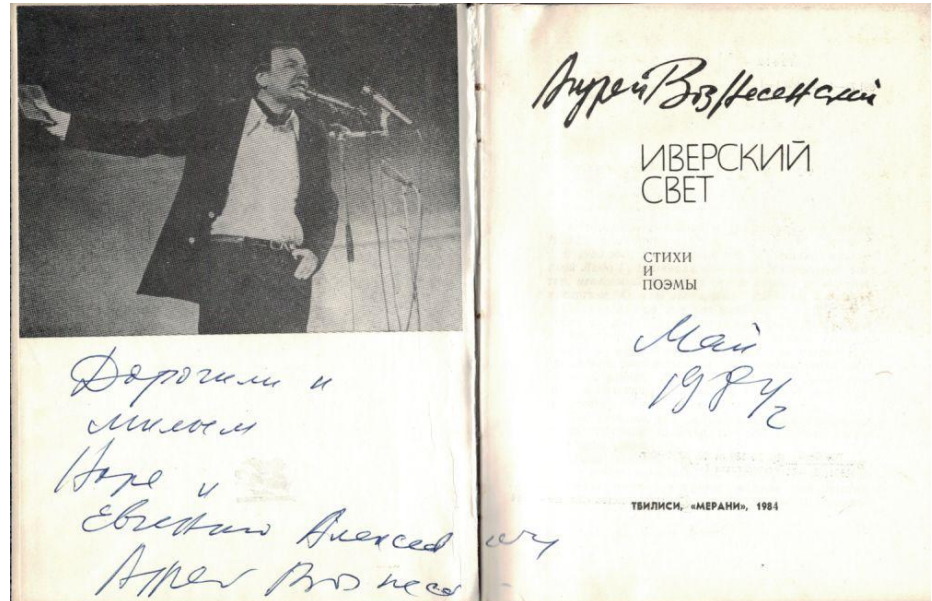 Дорогим и
милым
Норе и
Евгению Алексеевичу
Андрей Вознесе
Андрей Вознесенский
ИВЕРСКИЙ
СВЕТ
СТИХИ
И
ПОЭМЫ
Май
1984 г
ТБИЛИСИ, «МЕРАНИ», 1984